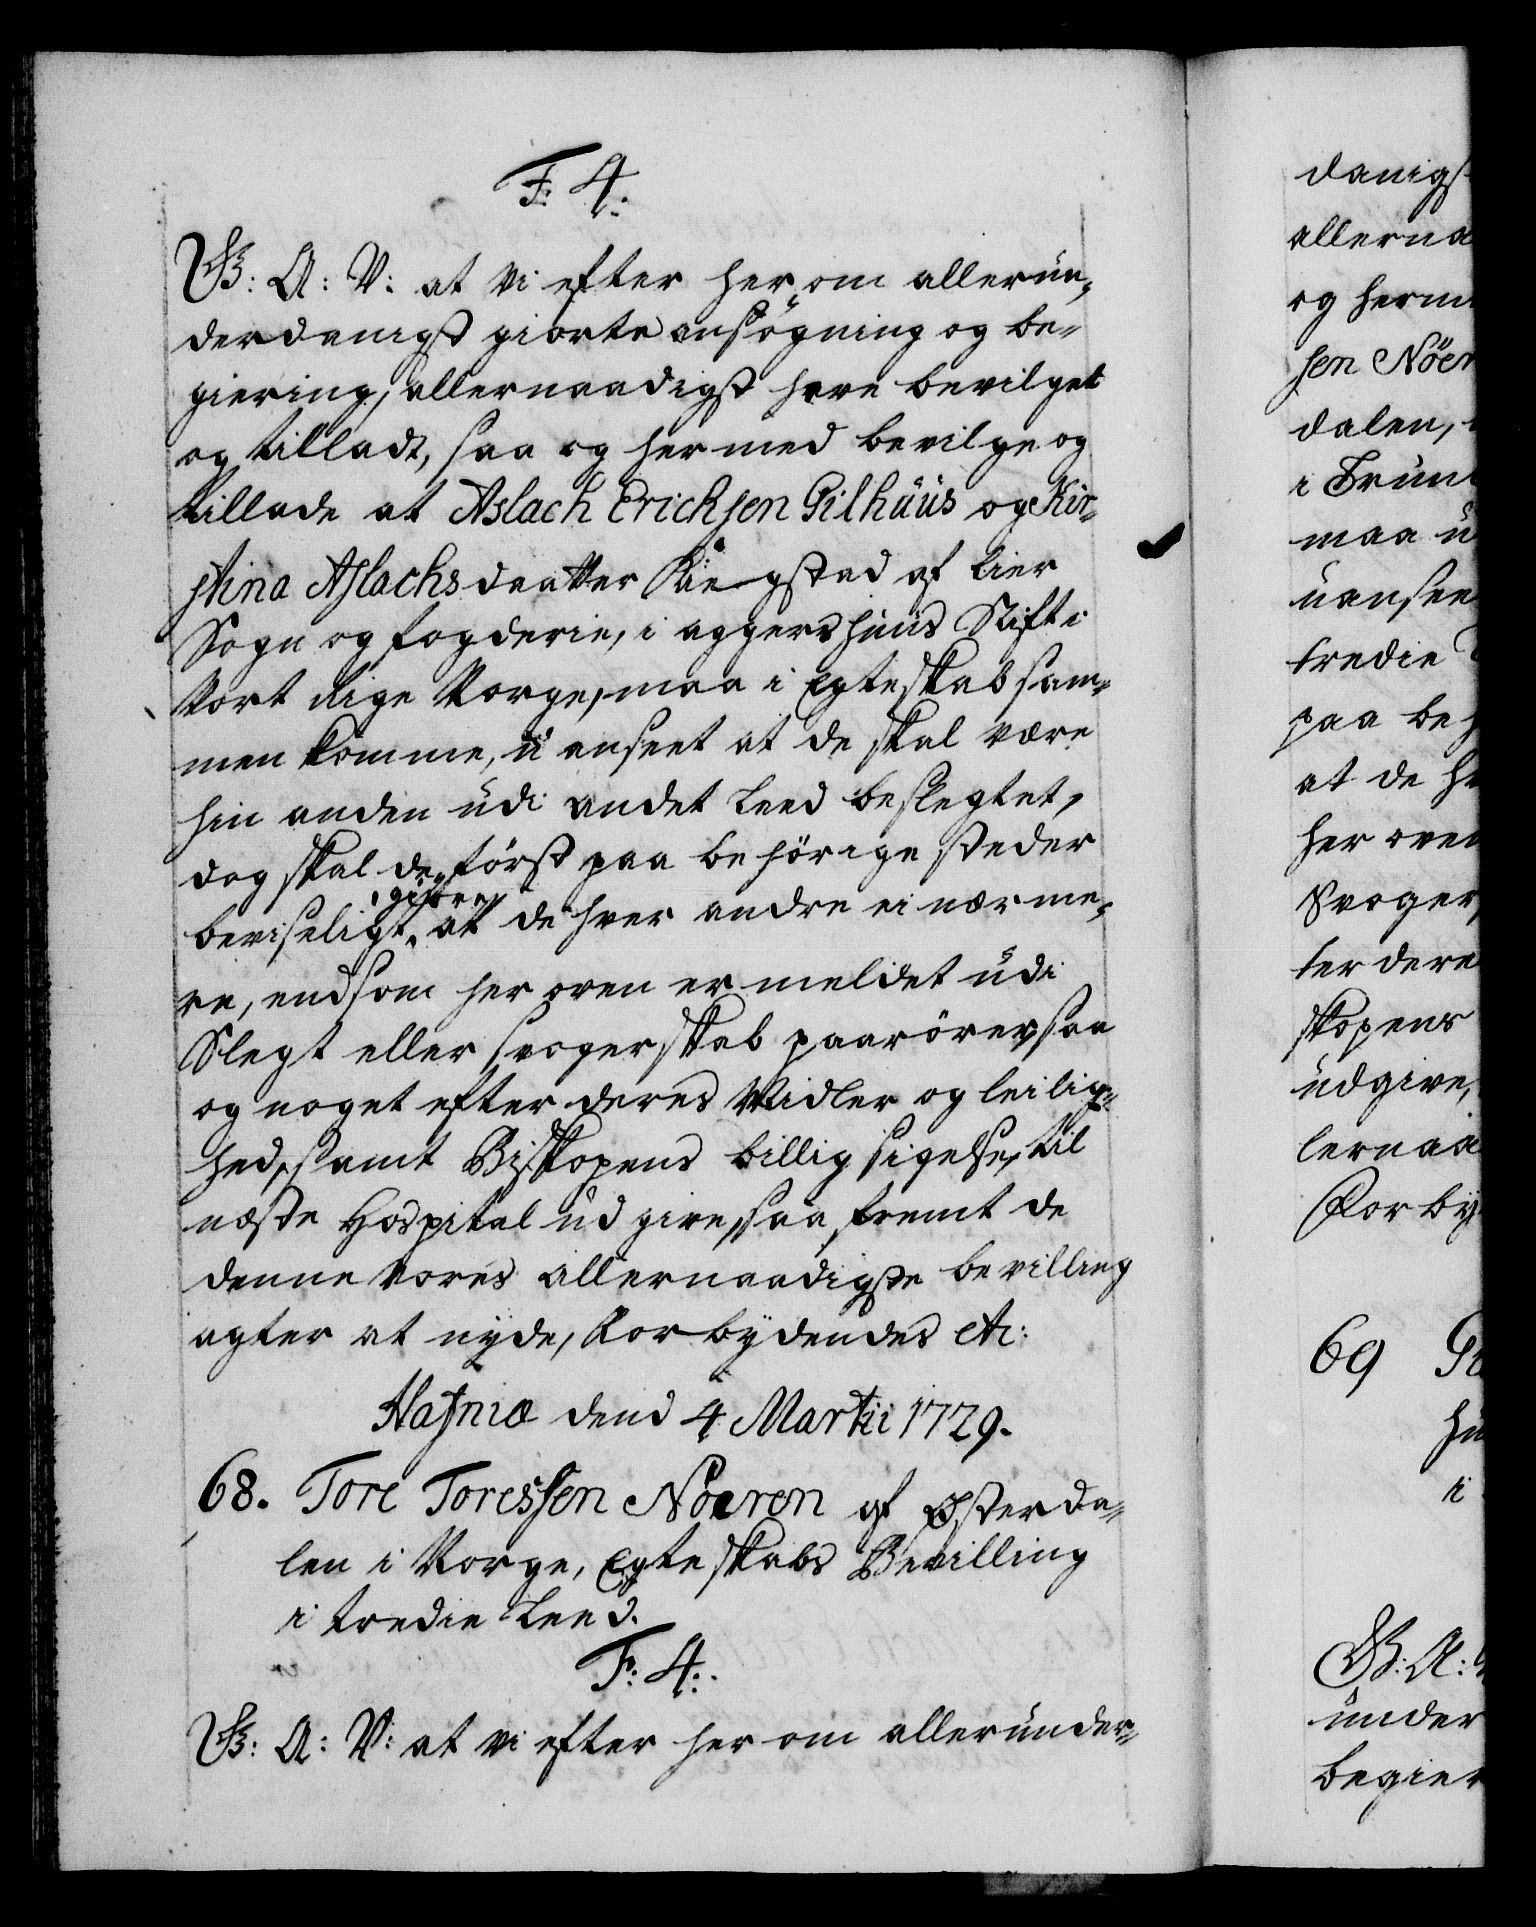 F. 4:
G: A: V: at vi efter her om allerun¬
derdanigst giorte ansøgning og be¬
giering, allernaadigst have bevilget
og tilladt, saa og hermed bevilge og
tillade at Aslach Erichsen Gilhuus og Kir¬
stina Aslachsdaatter af Lier
Sogn og fogderie, i aggershuus Stift i
Vort Rige Norge, maa i Egteskab sam¬
men komme, u anseet at de skal være
hin anden udi andet Leed beslegtet,
dog skal de først paa behørige steder
giøre
beviseligt, at de hver andre ei nærme¬
re, end som her oven er meldet udi
Slegt eller svogerskab paarører, saa
og noget efter deres Midler og leilig¬
hed, samt Biskopens billig sigelse, til
neste Hospital udgive, saa fremt de
denne vores allernaadigste bevilling
agter at nyde, Forbydendes etc:
Hafniæ dend 4 Martii 1729.
68. Tore Toressen Nöeren af Østerda¬
len i Norge, Egteskabs Bevilling
i tredie Leed.
F: 4:.
G: A: V: at vi efter her om allerunder¬
danigst
allerna
og herm
sen Nöer
dalen,
i Trun
maa u
uansee
tredie
paa beh
at de h
her oven
Svoger
ter dere
skopens
udgive,
lernaa
Forby
69 
hu
i
G: A:
under
begier